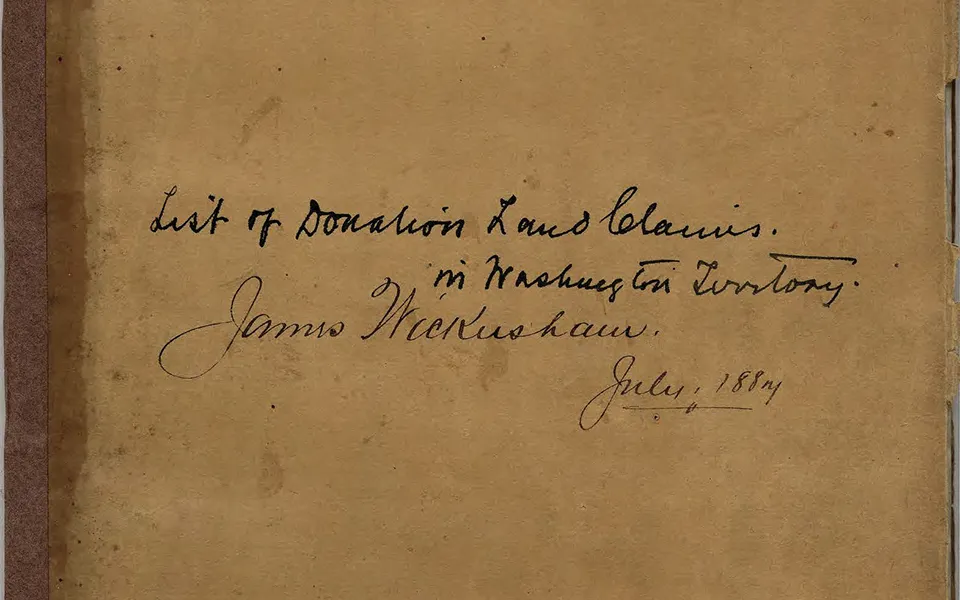 List of Donation Land Claims.
in Washington Territory.
James Wickersham.
July, 1884